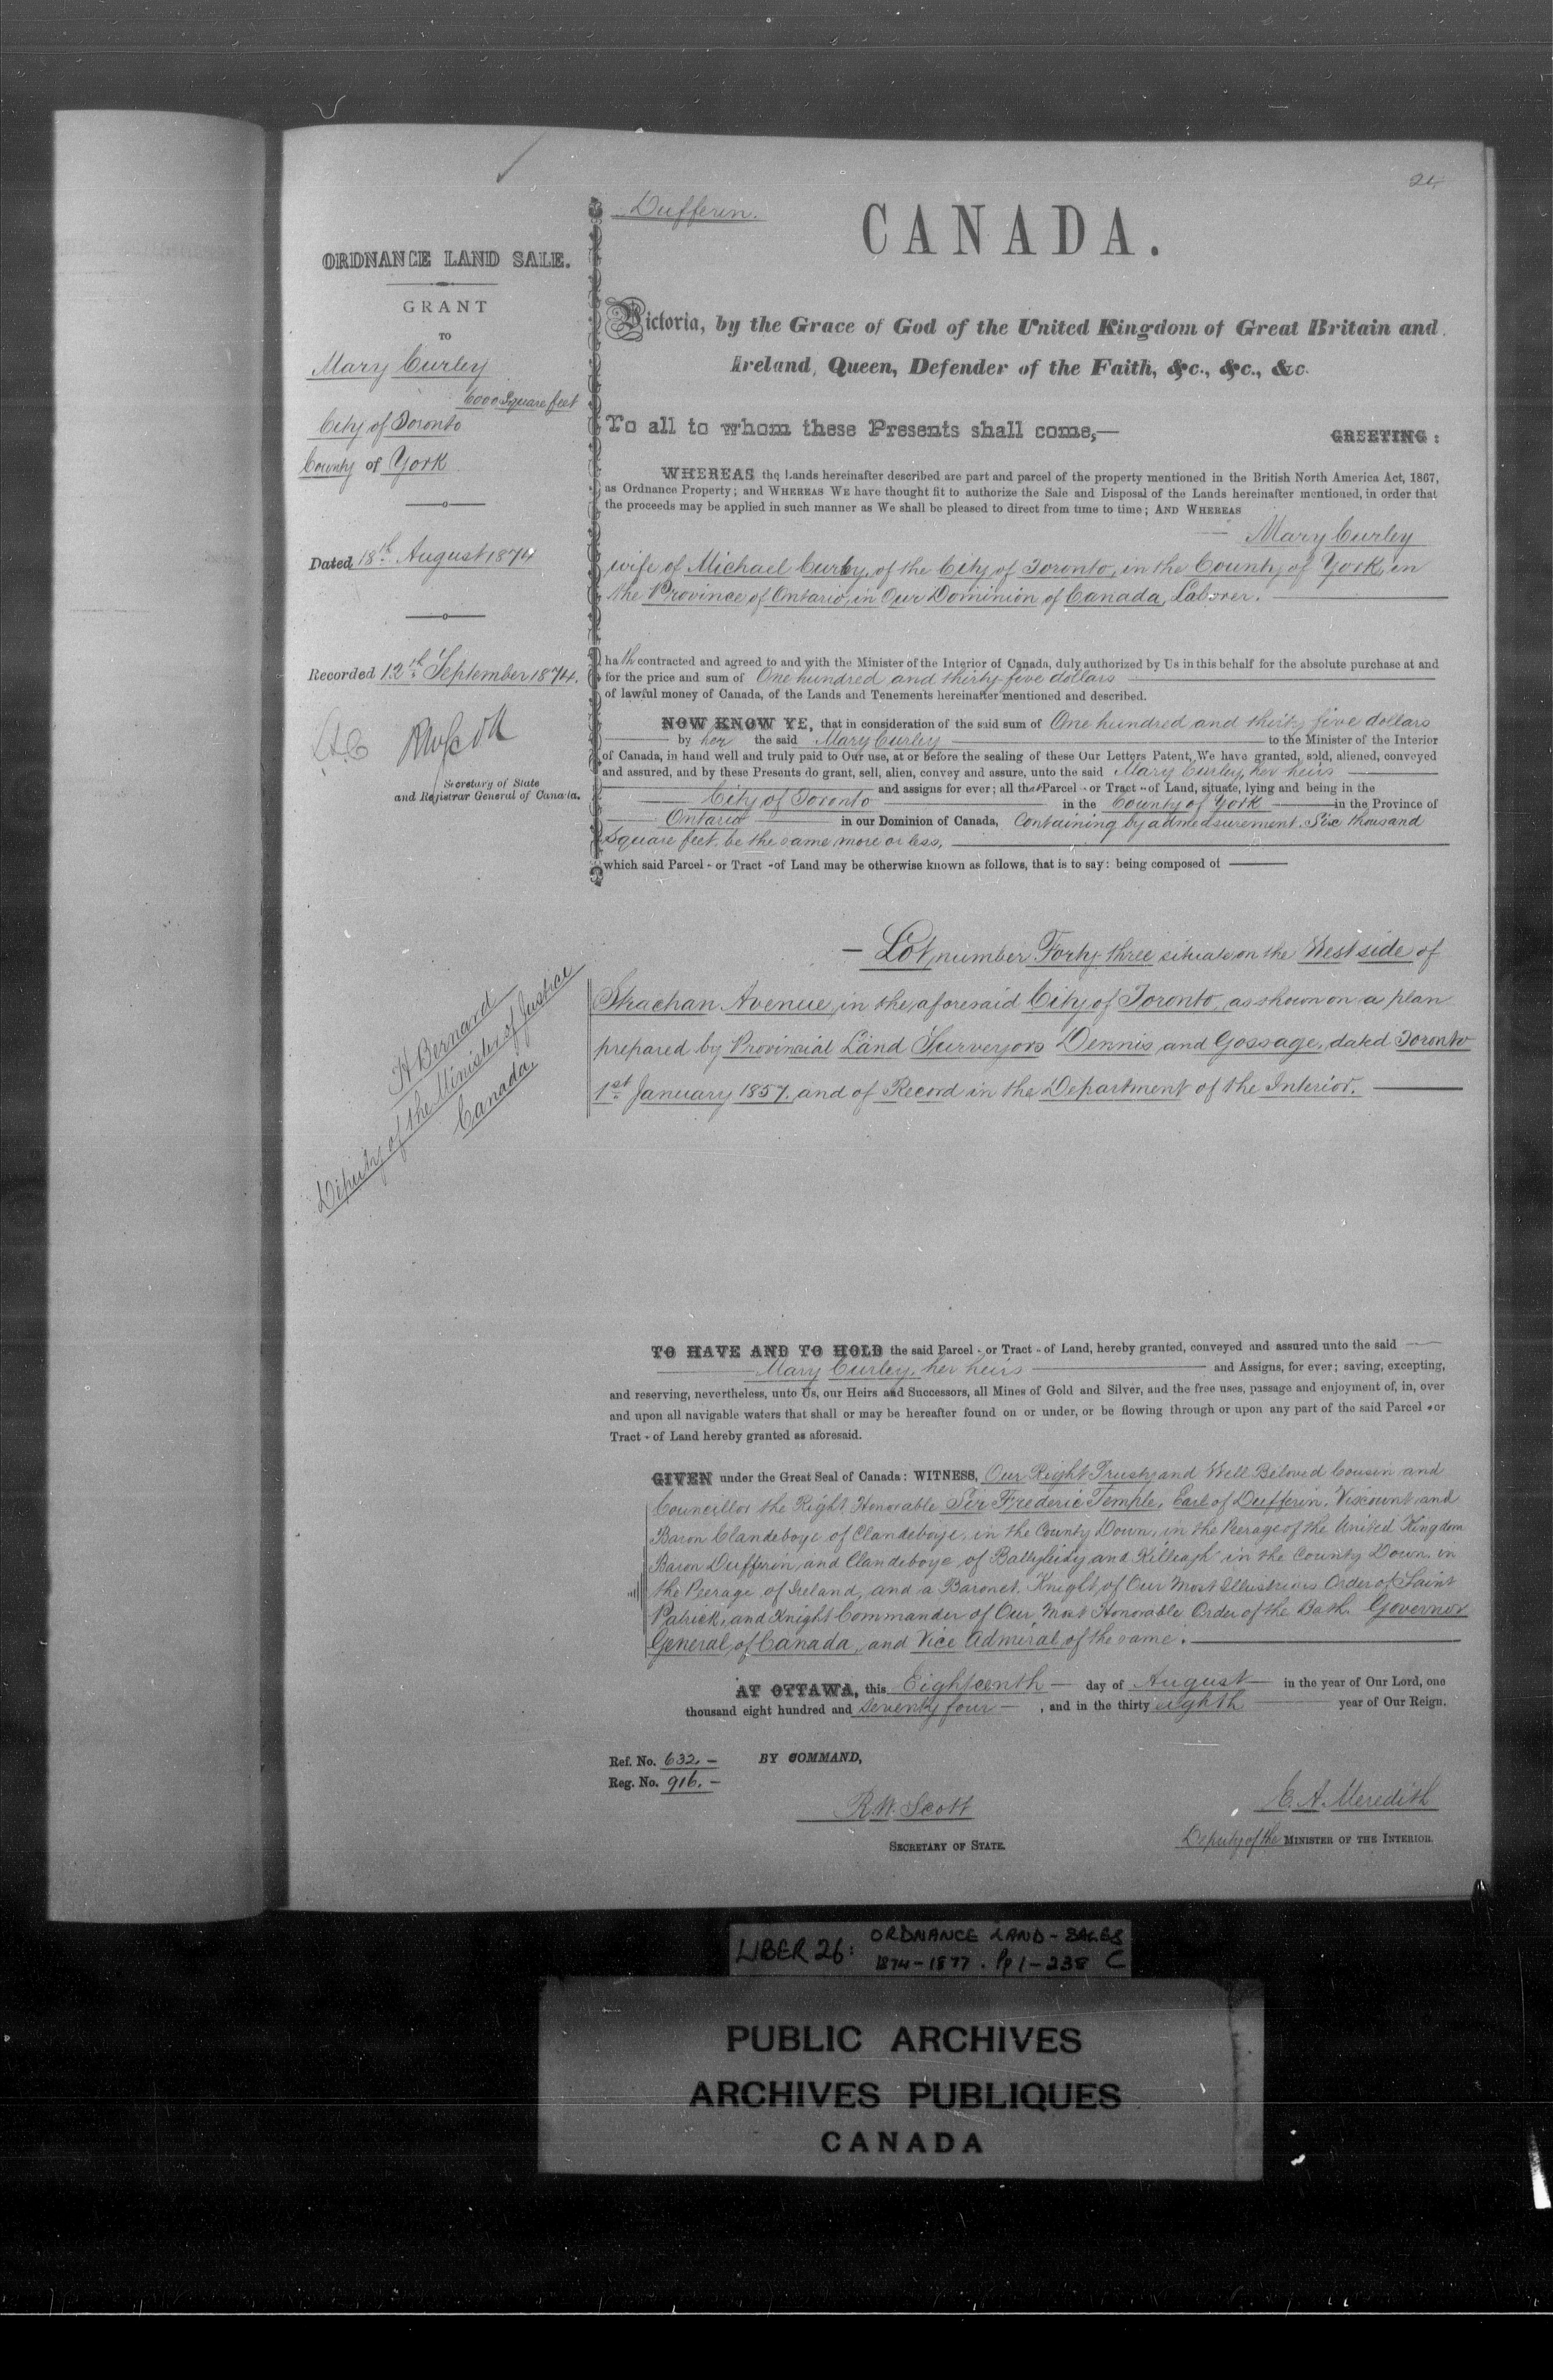 24
Dufferin.
CANADA.
ORDNANCE LAND SALE.
GRANT
TO
Mary Curley
6000 Square feet
City of Toronto
County of York
Dated 18th August 1874
Recorded 12th September 1874.
RWScott
Secretary of State
and Registrar General of Canada.
H Bernard
Deputy of the Minister of Justice
Canada.
Victoria, by the Grace of God of the United Kingdom of Great Britain and
Ireland, Queen, Defender of the Faith, &c., &c., &c.
To all to whom these Presents shall come,—
GREETING:
WHEREAS the Lands hereinafter described are part and parcel of the property mentioned in the British North America Act, 1867,
as Ordnance Property; and WHEREAS WE have thought fit to authorize the Sale and Disposal of the Lands hereinafter mentioned, in order that
the proceeds may be applied in such manner as We shall be pleased to direct from time to time; AND WHEREAS
Mary Curley
wife of Michael Curley, of the City of Toronto, in the County of York, in
the Province of Ontario, in Our Dominion of Canada, Laborer.
hath contracted and agreed to and with the Minister of the Interior of Canada, duly authorized by Us in this behalf for the absolute purchase at and
for the price and sum of One hundred and thirty five dollars
of lawful money of Canada, of the Lands and Tenements hereinafter mentioned and described.
NOW KNOW YE, that in consideration of the said sum of One hundred and thirty five dollars
by her the said Mary Curley to the Minister of the Interior
of Canada, in hand well and truly paid to Our use, at or before the sealing of these Our Letters Patent, We have granted, sold, aliened, conveyed
and assured, and by these Presents do grant, sell, alien, convey and assure, unto the said Mary Curley, her heirs
and assigns for ever; all that Parcel - or Tract - of Land, situate, lying and being in the
City of Toronto in the County of York in the Province of
Ontario in our Dominion of Canada, Containing by admeasurement. Six thousand
Square feet, be the same more or less,
which said Parcel - or Tract - of Land may be otherwise known as follows, that is to say: being composed of
— Lot number Forty three situate on the West side of
Strachan Avenue, in the aforesaid City of Toronto, as shown on a plan
prepared by Provincial Land Surveyors Dennis and Gossage, dated Toronto
1st January 1857. and of Record in the Department of the Interior.
TO HAVE AND TO HOLD the said Parcel - or Tract - of Land, hereby granted, conveyed and assured unto the said
Mary Curley, her heirs and Assigns, for ever; saving, excepting,
and reserving, nevertheless, unto Us, our Heirs and Successors, all Mines of Gold and Silver, and the free uses, passage and enjoyment of, in, over
and upon all navigable waters that shall or may be hereafter found on or under, or be flowing through or upon any part of the said Parcel - or
Tract - of Land hereby granted as aforesaid.
GIVEN under the Great Seal of Canada: WITNESS, Our Right Trusty and Well Beloved Cousin and
Councillor the Right Honorable Sir Frederic Temple, Earl of Dufferin, Viscount and
Baron Clandeboye of Clandeboye, in the County Down, in the Peerage of the United Kingdom
Baron Dufferin and Clandeboye of Ballyleidy and Killeagh in the County Down, in
the Peerage of Ireland, and a Baronet, Knight of Our Most Illustrious Order of Saint
Patrick, and Knight Commander of Our Most Honorable Order of the Bath. Governor
General of Canada, and Vice Admiral of the same.
AT OTTAWA, this Eighteenth day of August in the year of Our Lord, one
thousand eight hundred and seventy four, and in the thirty eighth year of Our Reign.
Ref. No. 632. -
BY COMMAND,
Reg. No. 916. -
R.W. Scott
SECRETARY OF STATE.
E. A. Meredith
Deputy of the MINISTER OF THE INTERIOR.
LIBER 26: ORDNANCE LAND-SALES
1874-1877. Pp 1-238 C
PUBLIC ARCHIVES
ARCHIVES PUBLIQUES
CANADA